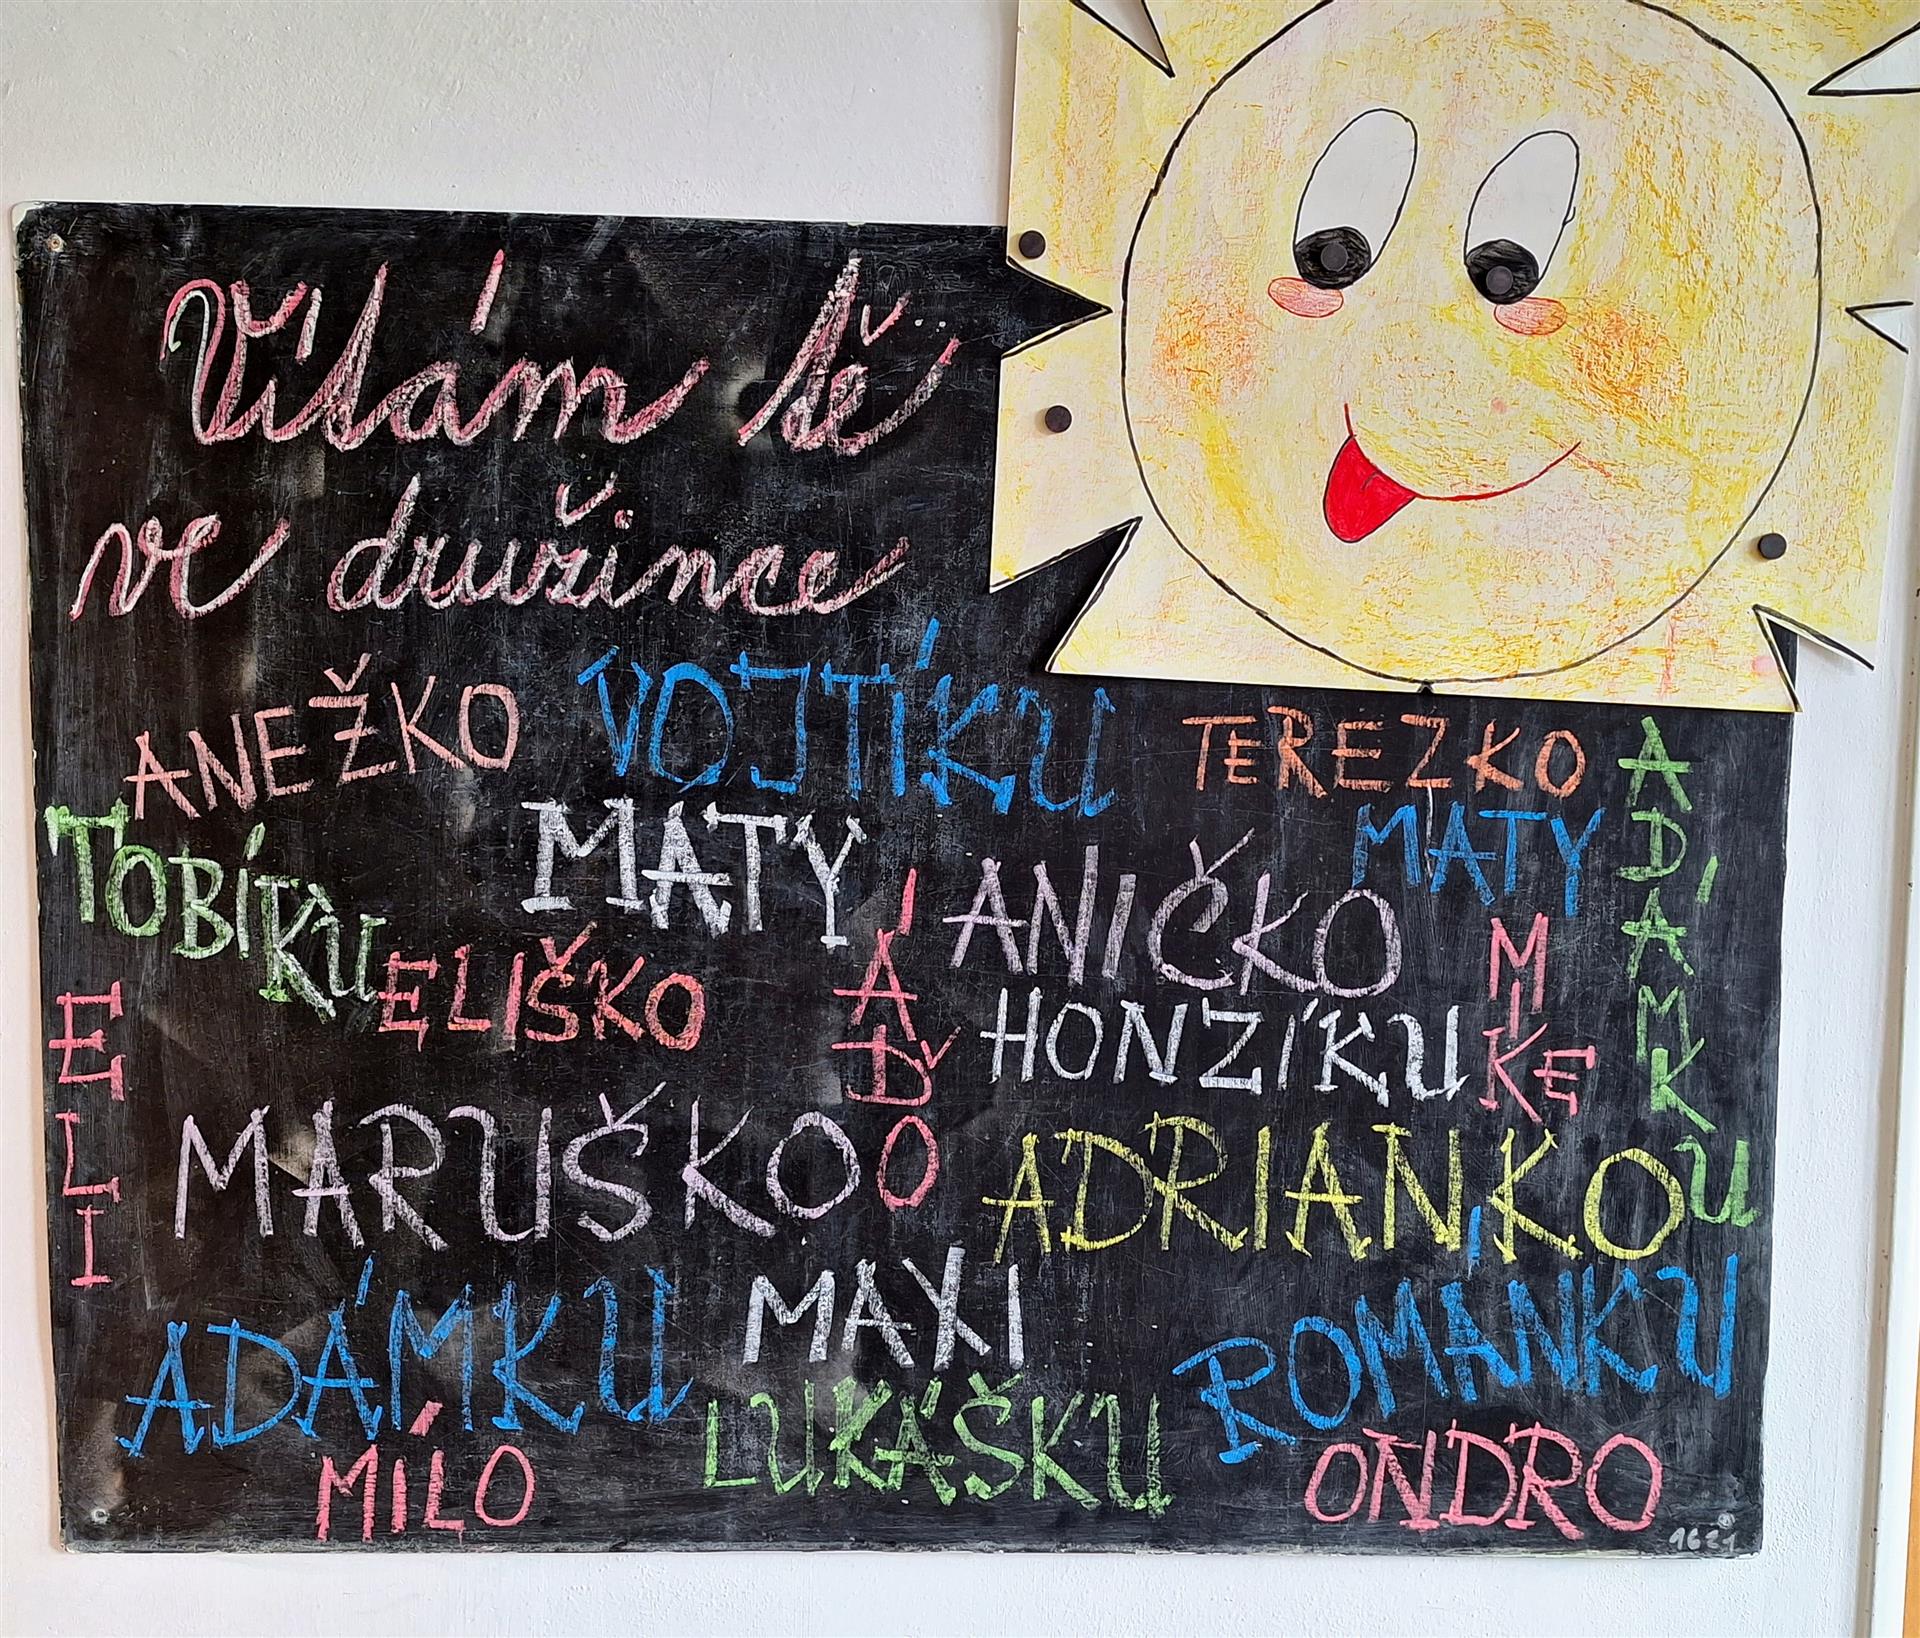 Vítám tě
ve družince
ANEŽKO
VOJTÍKU
TEREZKO
ADÁMKU
TOBÍKU
MATY
MATY
ANIČKO
ELIŠKO
ÁĎO
HONZÍKU
MIKE
ELLI
MARUŠKO
ADRIANKO
ADÁMKU
MAXI
ROMÁNKU
MÍLO
LUKÁŠKU
ONDRO
1621